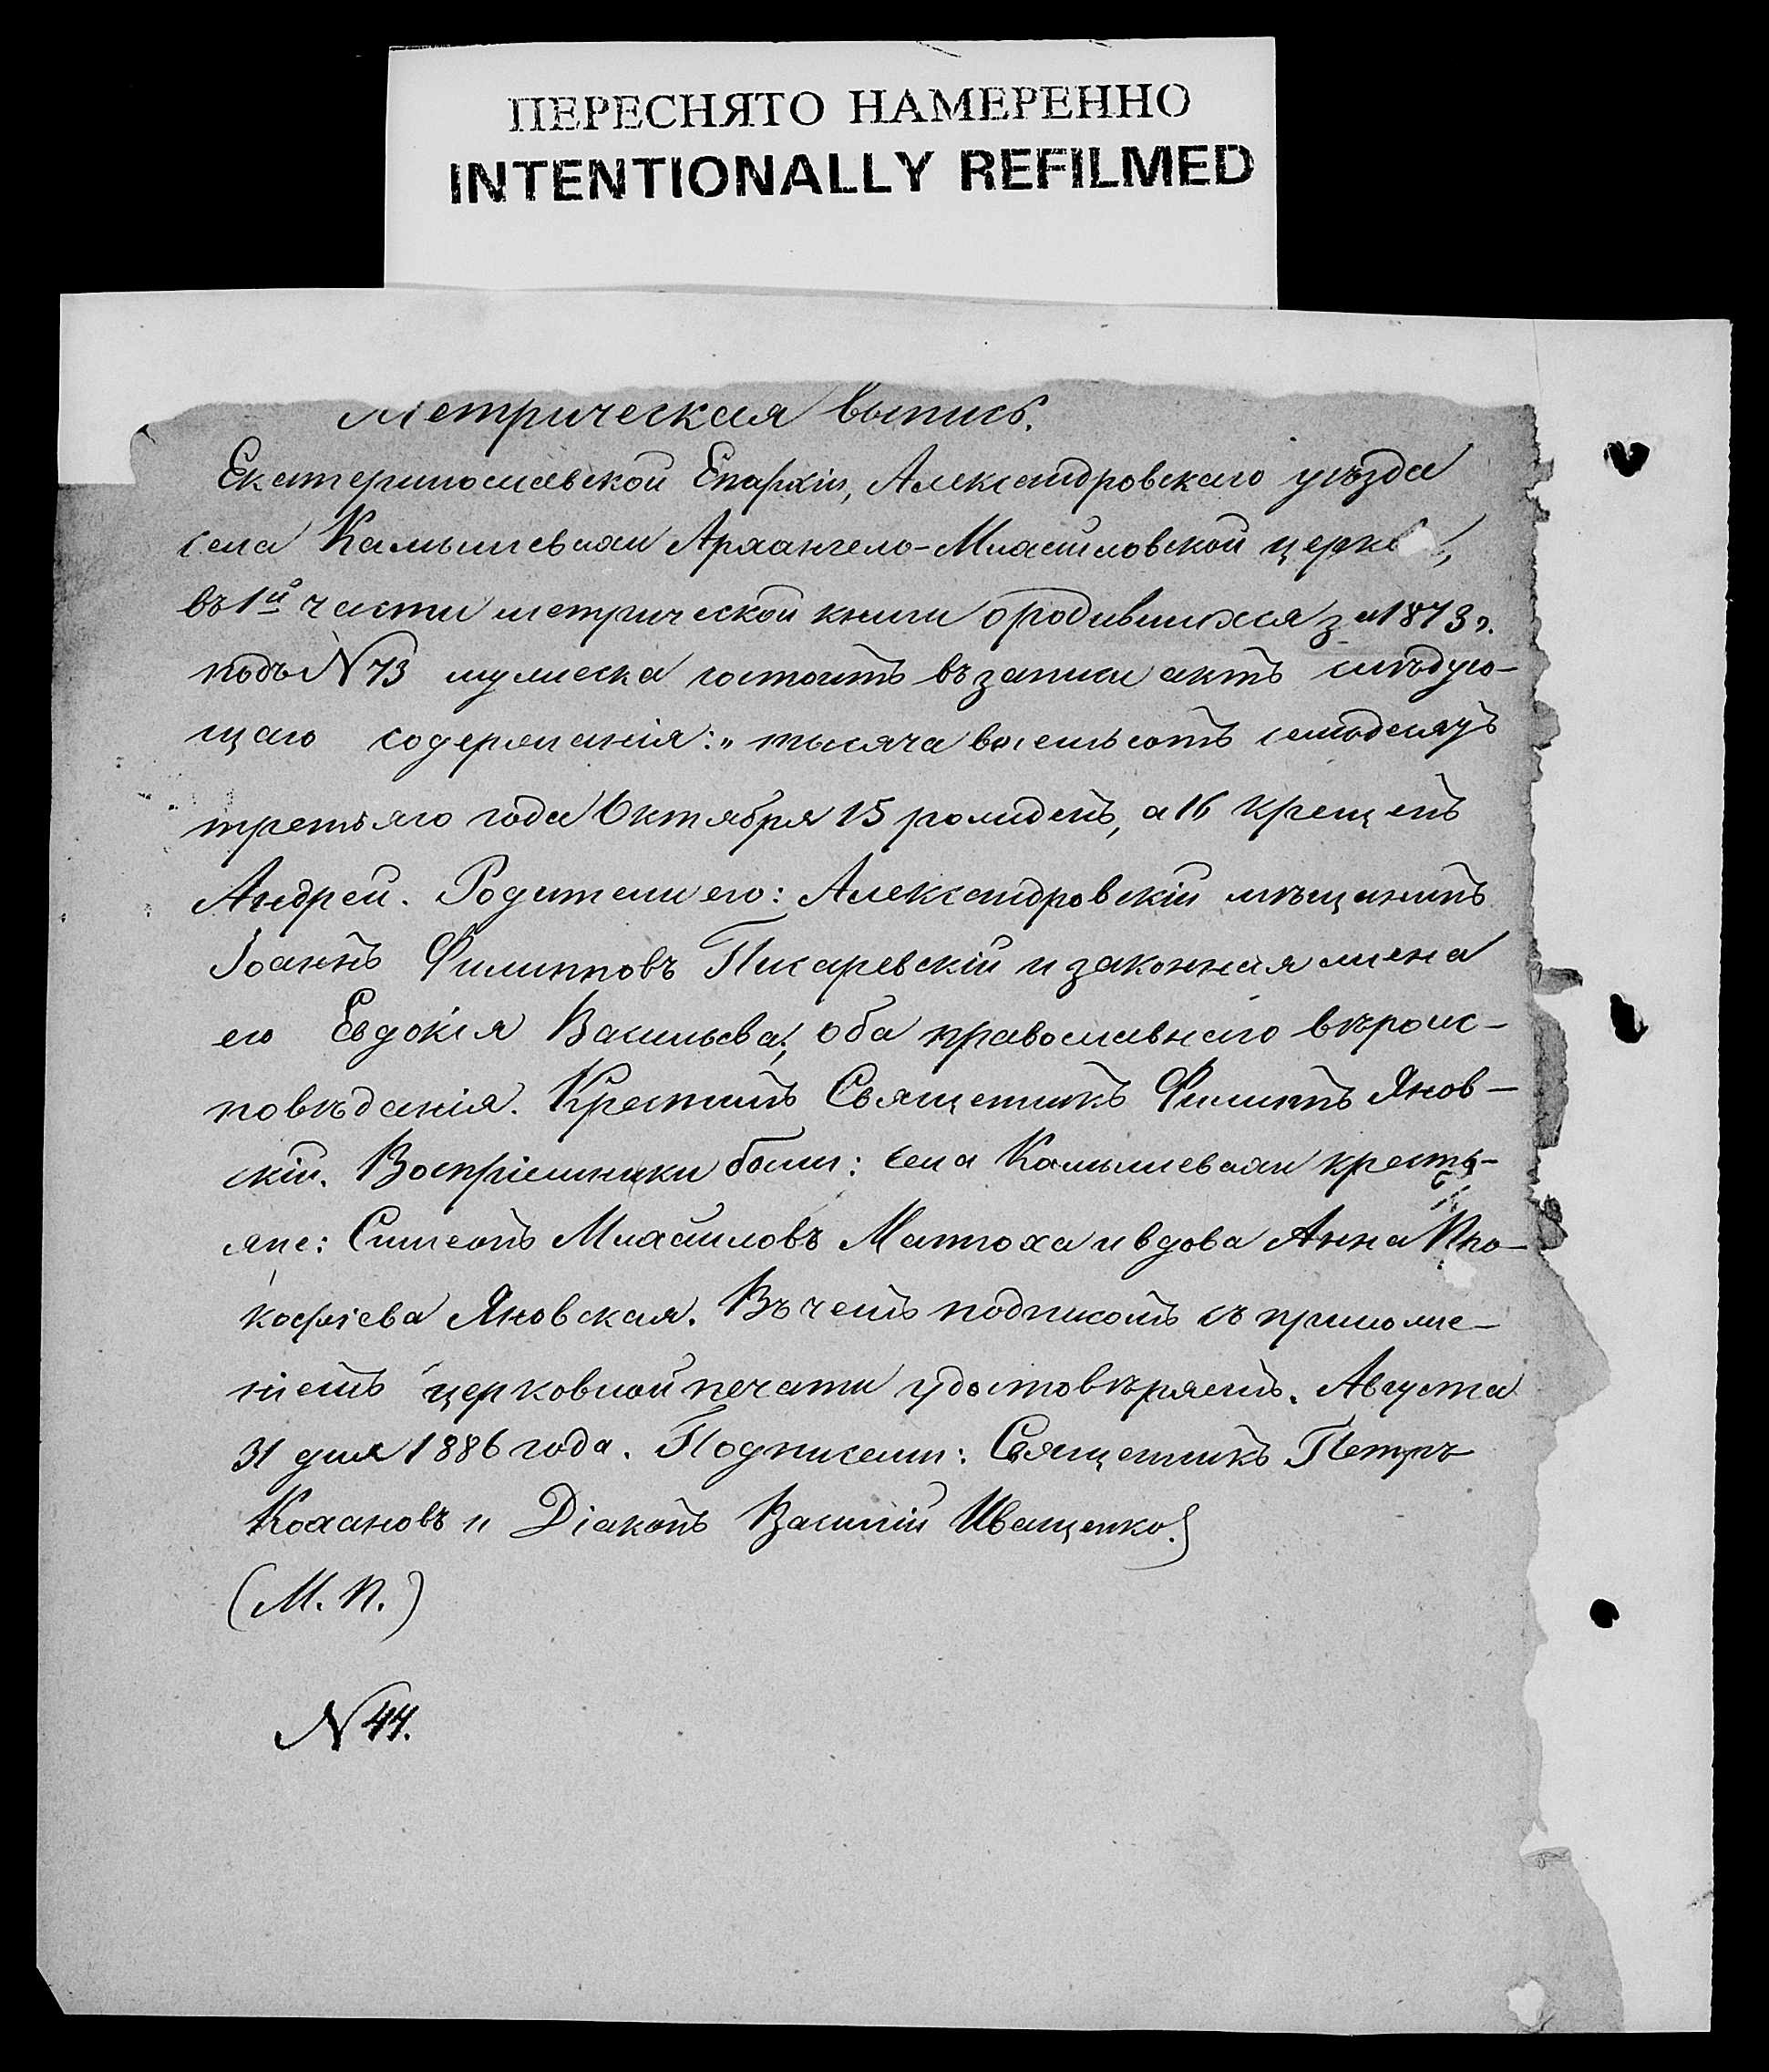 ПЕРЕСНЯТО НАМЕРЕННО
INTENTIONALLY REFILMED
Метрическая выпись.
Екатеринославской Епархіи, Александровскаго уѣзда
села Камышевахи Архангело-Михайловской церкви,
въ 1й части метрической книги о родившихся за 1873 г.
подъ N 73 мужеска состоитъ въ записи актъ слѣдую-
щаго содержанія: „тысяча восемьсотъ семьдесятъ
третьяго года Октября 15 рожденъ, а 16 крещенъ
Андрей. Родители его: Александровскій мѣщанинъ
Іоаннъ Филипповъ Писаревскій и законная жена
его Евдокія Васильева, оба православнаго вѣроис-
повѣданія. Крестилъ Священникъ Филиппъ Янов-
скій. Воспріемники были: села Камышевахи кресть-
яне: Симеонъ Михайловъ Матюха и вдова Анна Про-
кофіева Яновская. Въ чемъ подписомъ съ приложе-
ніемъ церковной печати удостовѣряемъ. Августа
31 дня 1886 года. Подписали: Священникъ Петръ
Кохановъ и Діаконъ Василій Иващенко.
(М. П.)
N 44.